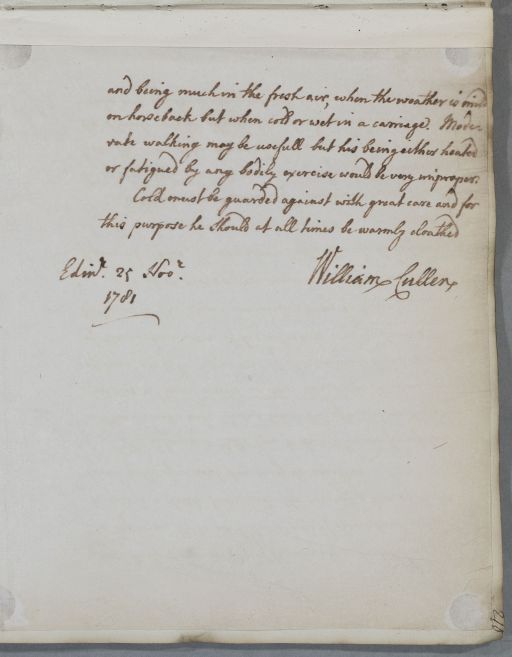 and being much in the fresh air, when the weather is mild
on horseback but when cold or wet in a carriage. Mode-
rate walking may be usefull but his being either heated
or fatigued by any bodily exercise would be very improper.
Cold must be guarded against with great care and for
this purpose he should at all times be warmly cloathed
William Cullen
Edinr. 25 Novr.
1781